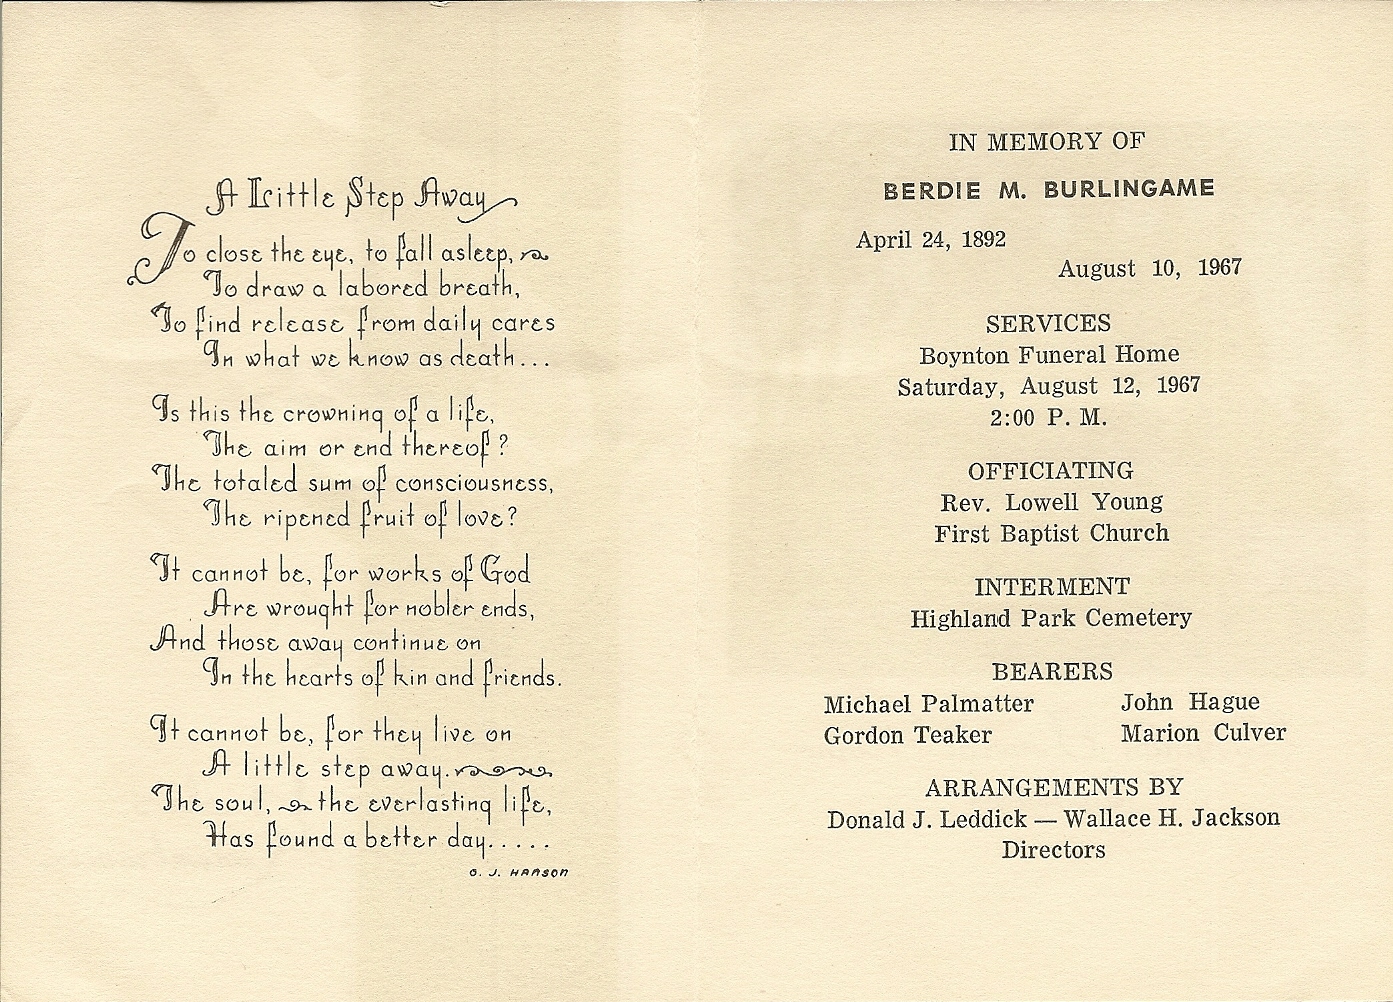 A Little Step Away
To close the eye, to fall asleep,
To draw a labored breath,
To find release from daily cares
In what we know as death...
Is this the crowning of a life,
The aim or end thereof?
The totaled sum of consciousness,
The ripened fruit of love?
It cannot be, for works of God
Are wrought for nobler ends,
And those away continue on
In the hearts of kin and friends.
It cannot be, for they live on
A little step away.
The soul, the everlasting life,
Has found a better day.....
O. J. HANSON
IN MEMORY OF
BERDIE M. BURLINGAME
April 24, 1892
August 10, 1967
SERVICES
Boynton Funeral Home
Saturday, August 12, 1967
2:00 P. M.
OFFICIATING
Rev. Lowell Young
First Baptist Church
INTERMENT
Highland Park Cemetery
BEARERS
Michael Palmatter John Hague
Gordon Teaker Marion Culver
ARRANGEMENTS BY
Donald J. Leddick — Wallace H. Jackson
Directors